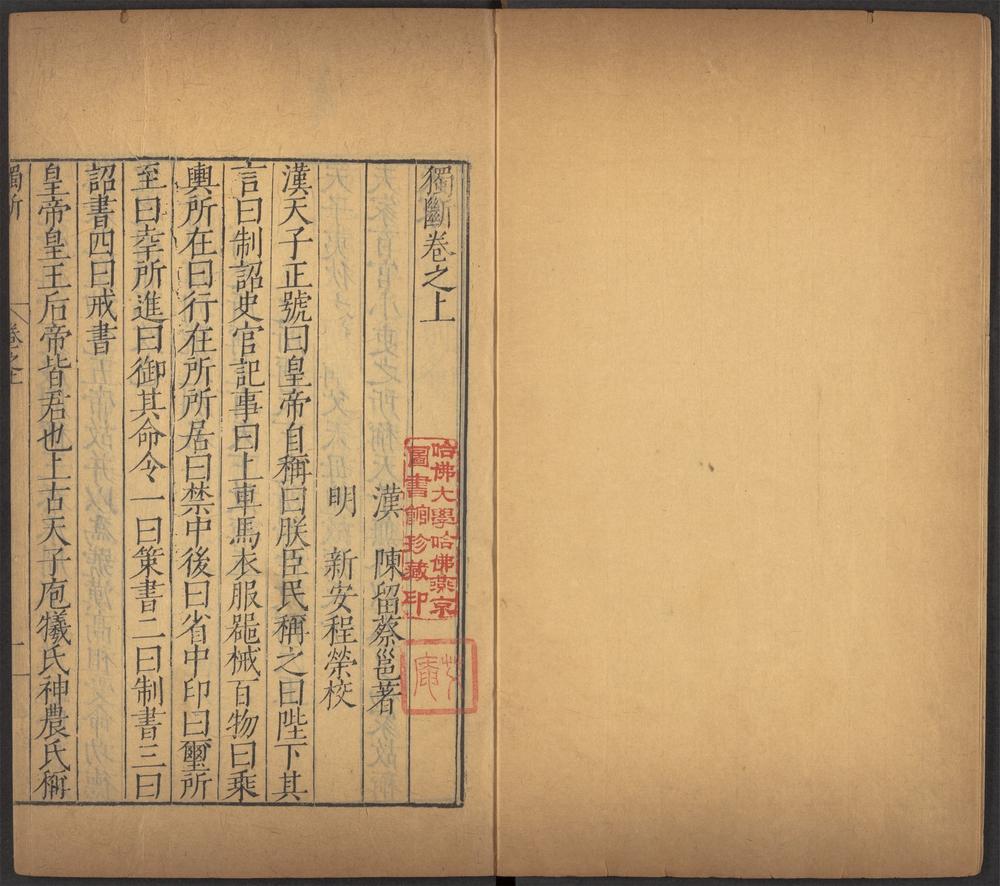 獨斷卷之上
漢 陳留蔡邕著
明 新安程榮校
漢天子正號曰皇帝自稱曰朕臣民稱之曰陛下其
言曰制詔史官記事曰上車馬衣服噐械百物曰乘
輿所在曰行在所所居曰禁中後曰省中印曰璽所
至曰幸所進曰御其命令一曰策書二曰制書三曰
詔書四曰戒書
皇帝皇王后帝皆君也上古天子庖犧氏神農氏稱
獨斷 卷之上 一
哈佛大學哈佛燕京
圖書館珍藏印